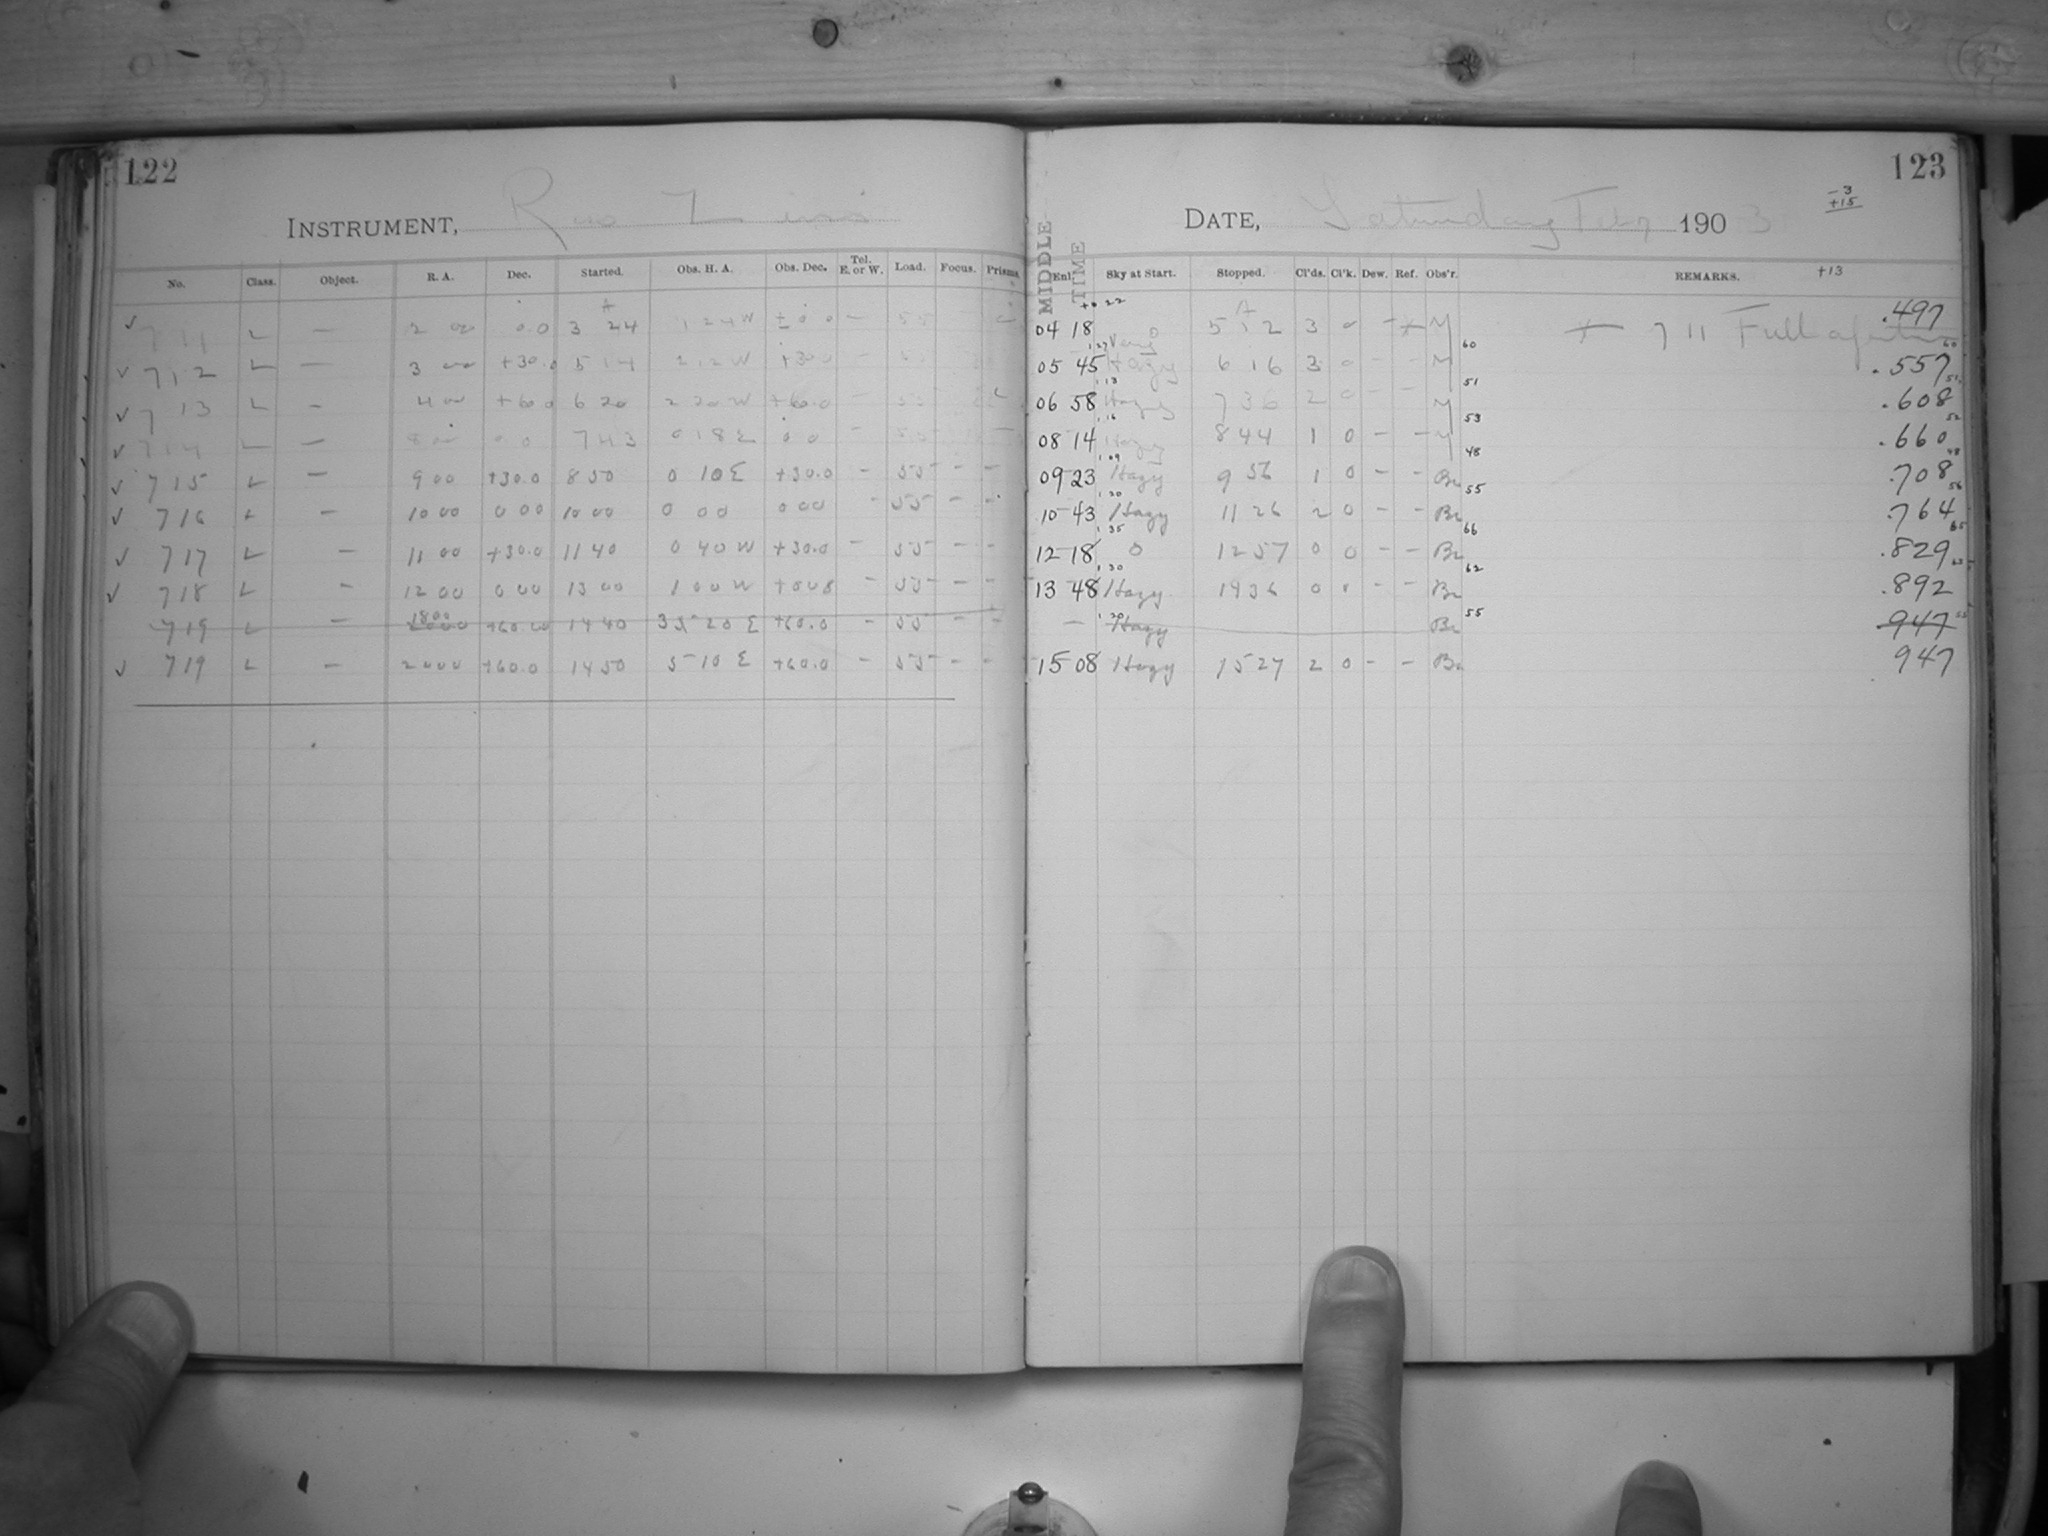 122
INSTRUMENT,
No. Class. Object. R. A. Dec. Started. Obs. H. A. Obs. Dec. Tel. E. or W. Load. Focus. Prisms
✓ 711 L — 2 00 0.0 3 24 1 24 W ± 0 0 — 55
✓ 712 L — 3 00 +30.0 5 14 2 12 W +30.0
✓ 713 L — 4 00 +60.0 6 20 2 20 W +60.0 —
✓ 714 L — 8 00 0 0 7 43 0 18 E 0 0 —
✓ 715 L — 9 00 +30.0 8 50 0 10 E +30.0 — 55 — —
✓ 716 L — 10 00 0 00 10 00 0 00 0 00 — 55 — —
✓ 717 L — 11 00 +30.0 11 40 0 40 W +30.0 — 55 — —
✓ 718 L — 12 00 0 00 13 00 1 00 W — 55 — —
719 L — 18 00 +60.0 14 40 3 20 E +60.0 — 55 — —
✓ 719 L — 20 00 +60.0 14 50 5 10 E +60.0 — 55 — —
123
-3
+15
DATE, Saturday Feb 7 1903
MIDDLE TIME
Enl. Sky at Start. Stopped. Cl'ds. Cl'k. Dew. Ref. Obs'r. REMARKS. +13
04 18 5 12 3 0 — * M * 711 Full aperture .497
05 45 Hazy 6 16 3 0 — — M .557
06 58 Hazy 7 36 2 0 — — M .608
08 14 Hazy 8 44 1 0 — — M .660
09 23 Hazy 9 56 1 0 — — Br .708
10 43 Hazy 11 26 2 0 — — Br .764
12 18 0 12 57 0 0 — — Br .829
13 48 Hazy 14 36 0 — — Br .892
— Hazy Br 947
15 08 Hazy 15 27 2 0 — — Br 947